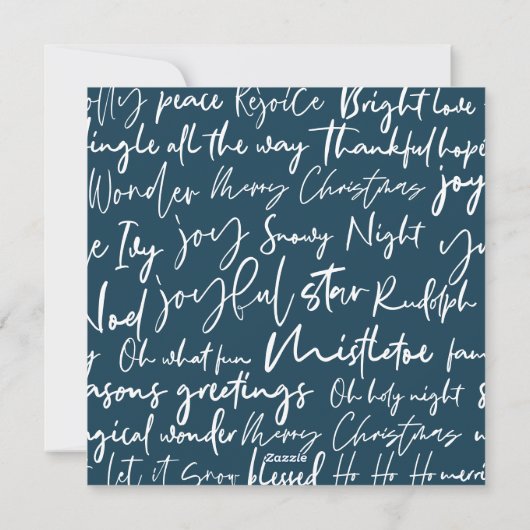 olly peace Rejoice Bright love
jingle all the way Thankful hope
Wonder Merry Christmas joy
e Ivy joy Snowy Night yu
Noel joyful star Rudolph
y Oh what fun Mistletoe fam
easons greetings Oh holy night s
agical wonder Merry Christmas w
let it Snow blessed Ho Ho Ho merri
Zazzle